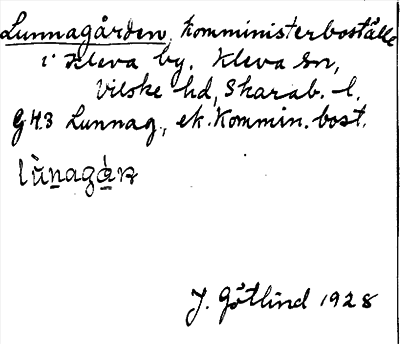 Lunnagården, Komministerboställe
i Kleva by. Kleva sn,
Vilske hd, Skarab. l.
G43 Lunnag, ek. Kommin. bost.
J. Götlind 1928